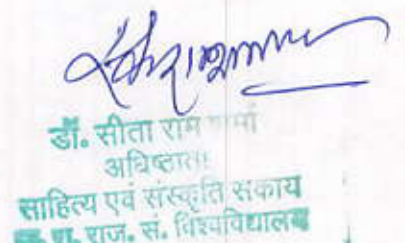 डॉ. सीता राम शर्मा
अधिष्ठाता
साहित्य एवं संस्कृति संकाय
रा. राज. सं. विश्वविद्यालय